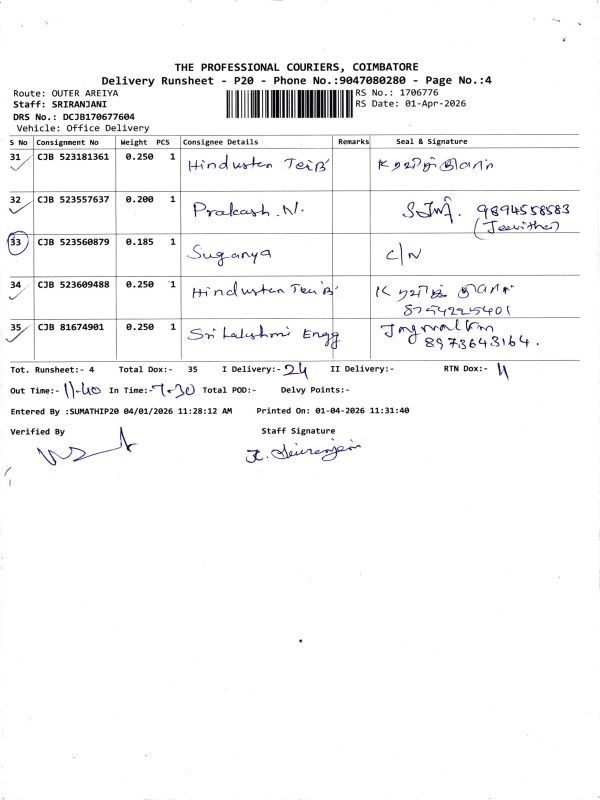 THE PROFESSIONAL COURIERS, COIMBATORE
Delivery Runsheet - P20 - Phone No.:9047080280 - Page No.:4
Route: OUTER AREIYA
RS No.: 1706776
Staff: SRIRANJANI
RS Date: 01-Apr-2026
DRS No.: DCJB170677604
Vehicle: Office Delivery
S No Consignment No Weight PCS Consignee Details Remarks Seal & Signature
31 CJB 523181361 0.250 1 Hindustan K
32 CJB 523557637 0.200 1 Prakash.N. 9894558583
(Jeevitha)
33 CJB 523560879 0.185 1 Suganya C/N
34 CJB 523609488 0.250 1 Hindustan K
8754225401
35 CJB 81674901 0.250 1 Sri Lakshmi Engg
8973643164.
Tot. Runsheet:- 4 Total Dox:- 35 I Delivery:- 24 II Delivery:- RTN Dox:- 11
Out Time:- 11-40 In Time:- 7-30 Total POD:- Delvy Points:-
Entered By :SUMATHIP20 04/01/2026 11:28:12 AM Printed On: 01-04-2026 11:31:40
Verified By Staff Signature